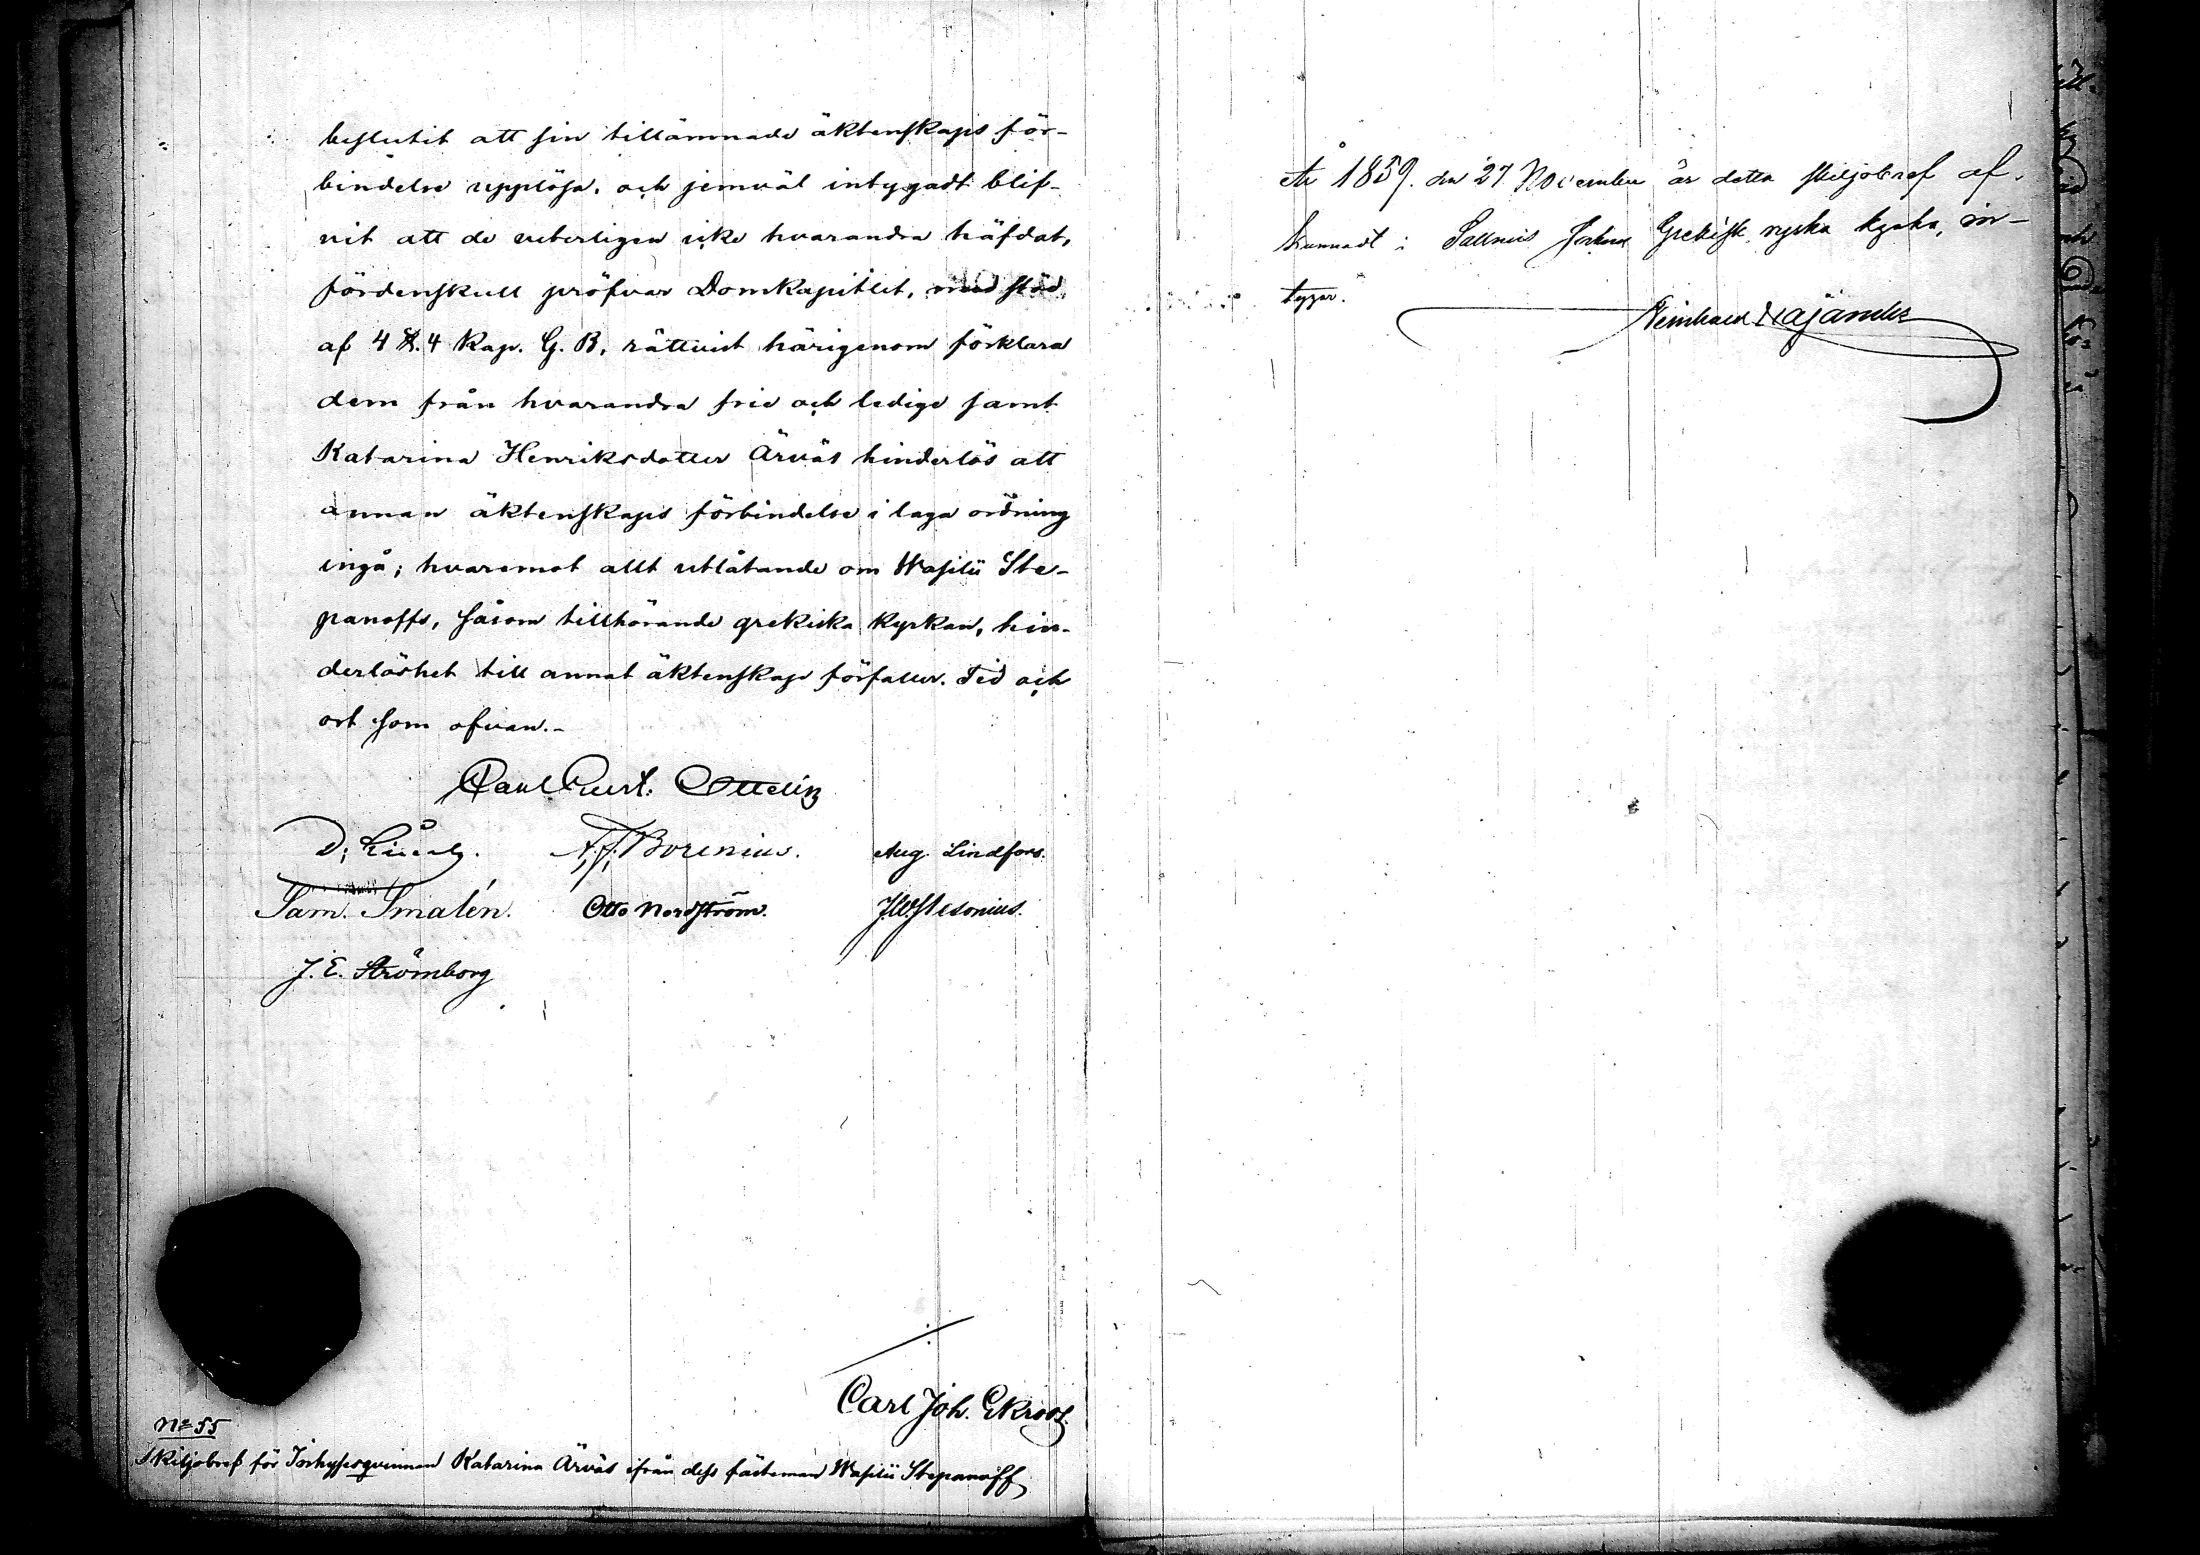 beslutit att sin tillämnade äktenskaps för-
bindelse upplösa, och jemväl intygadt blif-
vit att de veterligen icke hvarandra häfdat,
fördenskull pröfvar Domkapitlet, med stöd
af 4 §. 4 Kap. G. B., rättvist härigenom förklara
dem från hvarandra frie och ledige samt
Katarina Henriksdotter Ärväs hinderlös att
annan äktenskaps förbindelse i laga ordning
ingå; hvaremot allt utlåtande om Wasilii Ste-
panoffs, såsom tillhörande grekiska kyrkan, hin-
derlöshet till annat äktenskap förfaller. Tid och
ort som ofvan.-
Carl Gust. Ottelin
A. J. Borenius. Aug. Lindfors.
Sam. Smalén. Otto Nordström. J.W. Alesonius.
J. E. Strömborg
Carl Joh. Ekroos.
No 55
Skiljobref för Inhysesqvinnan Katarina Ärväs ifrån dess fästeman Wasilii Stepanoff
År 1859. den 27 November är detta skiljobref af-
kunnadt i Sallmis Grekisk ryska kyrka, in-
tygar.
Reinhard Najander